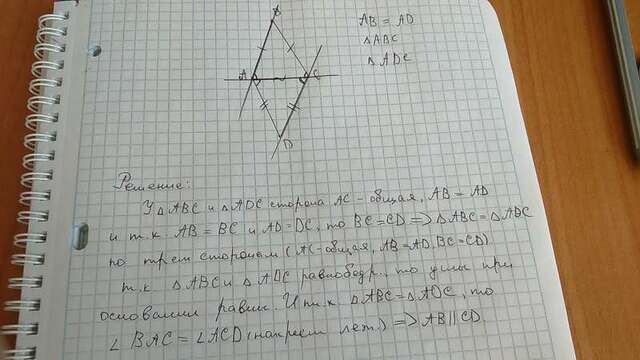 B
AB = AD
△ABC
A
C
△ADC
D
Решение:
У △ABC и △ADC сторона AC - общая, AB = AD
и т.к. AB = BC и AD = DC, то BC = CD => △ABC = △ADC
по трем сторонам (AC - общая, AB = AD, BC = CD)
т.к. △ABC и △ADC равнобедр., то углы при
основании равны. И т.к. △ABC = △ADC, то
∠BAC = ∠ACD (накрест леж.) => AB || CD.